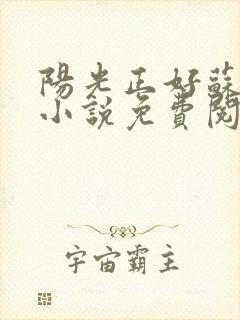 陽光正好蘇
小說免費閱
宇宙霸主